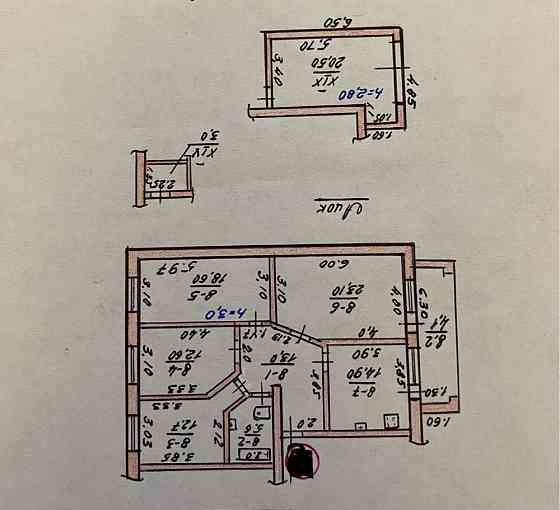 1.0
3.85
2.0
8-2
5.6
2.12
8-3
12.7
3.03
1.60
1.30
3.85
8-7
14.90
3.90
3.85
8-1
13.0
3.33
3.33
8-4
12.60
3.10
4.40
2.0
1.47
2.19
4.0
8.2
4.1
6.30
4.00
8-6
23.10
6.00
3.10
3.10
h=3.0
8-5
18.60
5.97
3.10
2.25
XIX
3,0
1.60
1.05
h=2,80
4.85
XIX
20,50
3.40
5.70
6.50